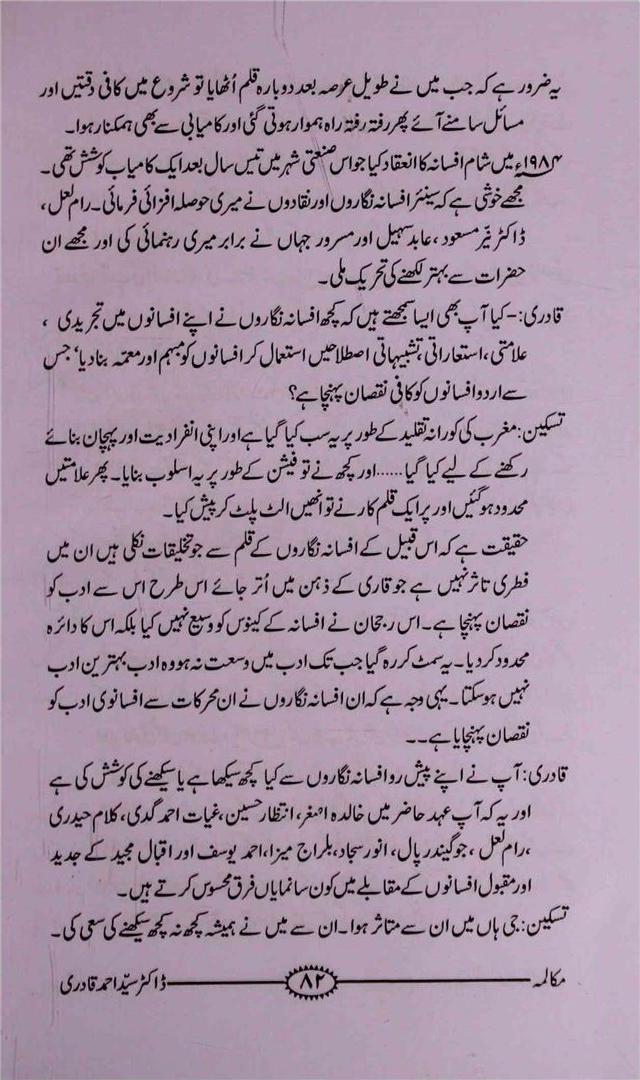 یہ ضرور ہے کہ جب میں نے طویل عرصہ بعد دوبارہ قلم اُٹھایا تو شروع میں کافی دقتیں اور
مسائل سامنے آئے پھر رفتہ رفتہ راہ ہموار ہوتی گئی اور کامیابی سے بھی ہمکنار ہوا۔
۱۹۸۴ء میں شام افسانہ کا انعقاد کیا جو اس صنعتی شہر میں تیس سال بعد ایک کامیاب کوشش تھی۔
مجھے خوشی ہے کہ سینئر افسانہ نگاروں اور نقادوں نے میری حوصلہ افزائی فرمائی۔ رام لعل،
ڈاکٹر نیّر مسعود، عابد سہیل اور مسرور جہاں نے برابر میری رہنمائی کی اور مجھے ان
حضرات سے بہتر لکھنے کی تحریک ملی۔
قادری:- کیا آپ بھی ایسا سمجھتے ہیں کہ کچھ افسانہ نگاروں نے اپنے افسانوں میں تجریدی ،
علامتی، استعاراتی، تشبیہاتی اصطلاحیں استعمال کر افسانوں کو مبہم اور معمہ بنا دیا، جس
سے اردو افسانوں کو کافی نقصان پہنچا ہے؟
تسکین: مغرب کی کورانہ تقلید کے طور پر یہ سب کیا گیا ہے اور اپنی انفرادیت اور پہچان بنائے
رکھنے کے لیے کیا گیا......اور کچھ نے تو فیشن کے طور پر یہ اسلوب بنایا۔ پھر علامتیں
محدود ہوگئیں اور ہر ایک قلم کار نے تو انھیں الٹ پلٹ کر پیش کیا۔
حقیقت ہے کہ اس قبیل کے افسانہ نگاروں کے قلم سے جو تخلیقات نکلی ہیں ان میں
فطری تاثر نہیں ہے جو قاری کے ذہن میں اُتر جائے اس طرح اس سے ادب کو
نقصان پہنچا ہے۔ اس رجحان نے افسانہ کے کینوس کو وسیع نہیں کیا بلکہ اس کا دائرہ
محدود کر دیا۔ یہ سمٹ کر رہ گیا جب تک ادب میں وسعت نہ ہو وہ ادب بہترین ادب
نہیں ہوسکتا۔ یہی وجہ ہے کہ ان افسانہ نگاروں نے ان محرکات سے افسانوی ادب کو
نقصان پہنچایا ہے۔۔
قادری: آپ نے اپنے پیش رو افسانہ نگاروں سے کیا کچھ سیکھا ہے یا سیکھنے کی کوشش کی ہے
اور یہ کہ آپ عہد حاضر میں خالدہ اصغر، انتظار حسین، غیاث احمد گدی، کلام حیدری
،رام لعل ، جوگیندر پال، انور سجاد، بلراج میزا، احمد یوسف اور اقبال مجید کے جدید
اور مقبول افسانوں کے مقابلے میں کون سا نمایاں فرق محسوس کرتے ہیں۔
تسکین: جی ہاں میں ان سے متاثر ہوا۔ ان سے میں نے ہمیشہ کچھ نہ کچھ سیکھنے کی سعی کی۔
مکالمہ ۸۲ ڈاکٹر سیّد احمد قادری